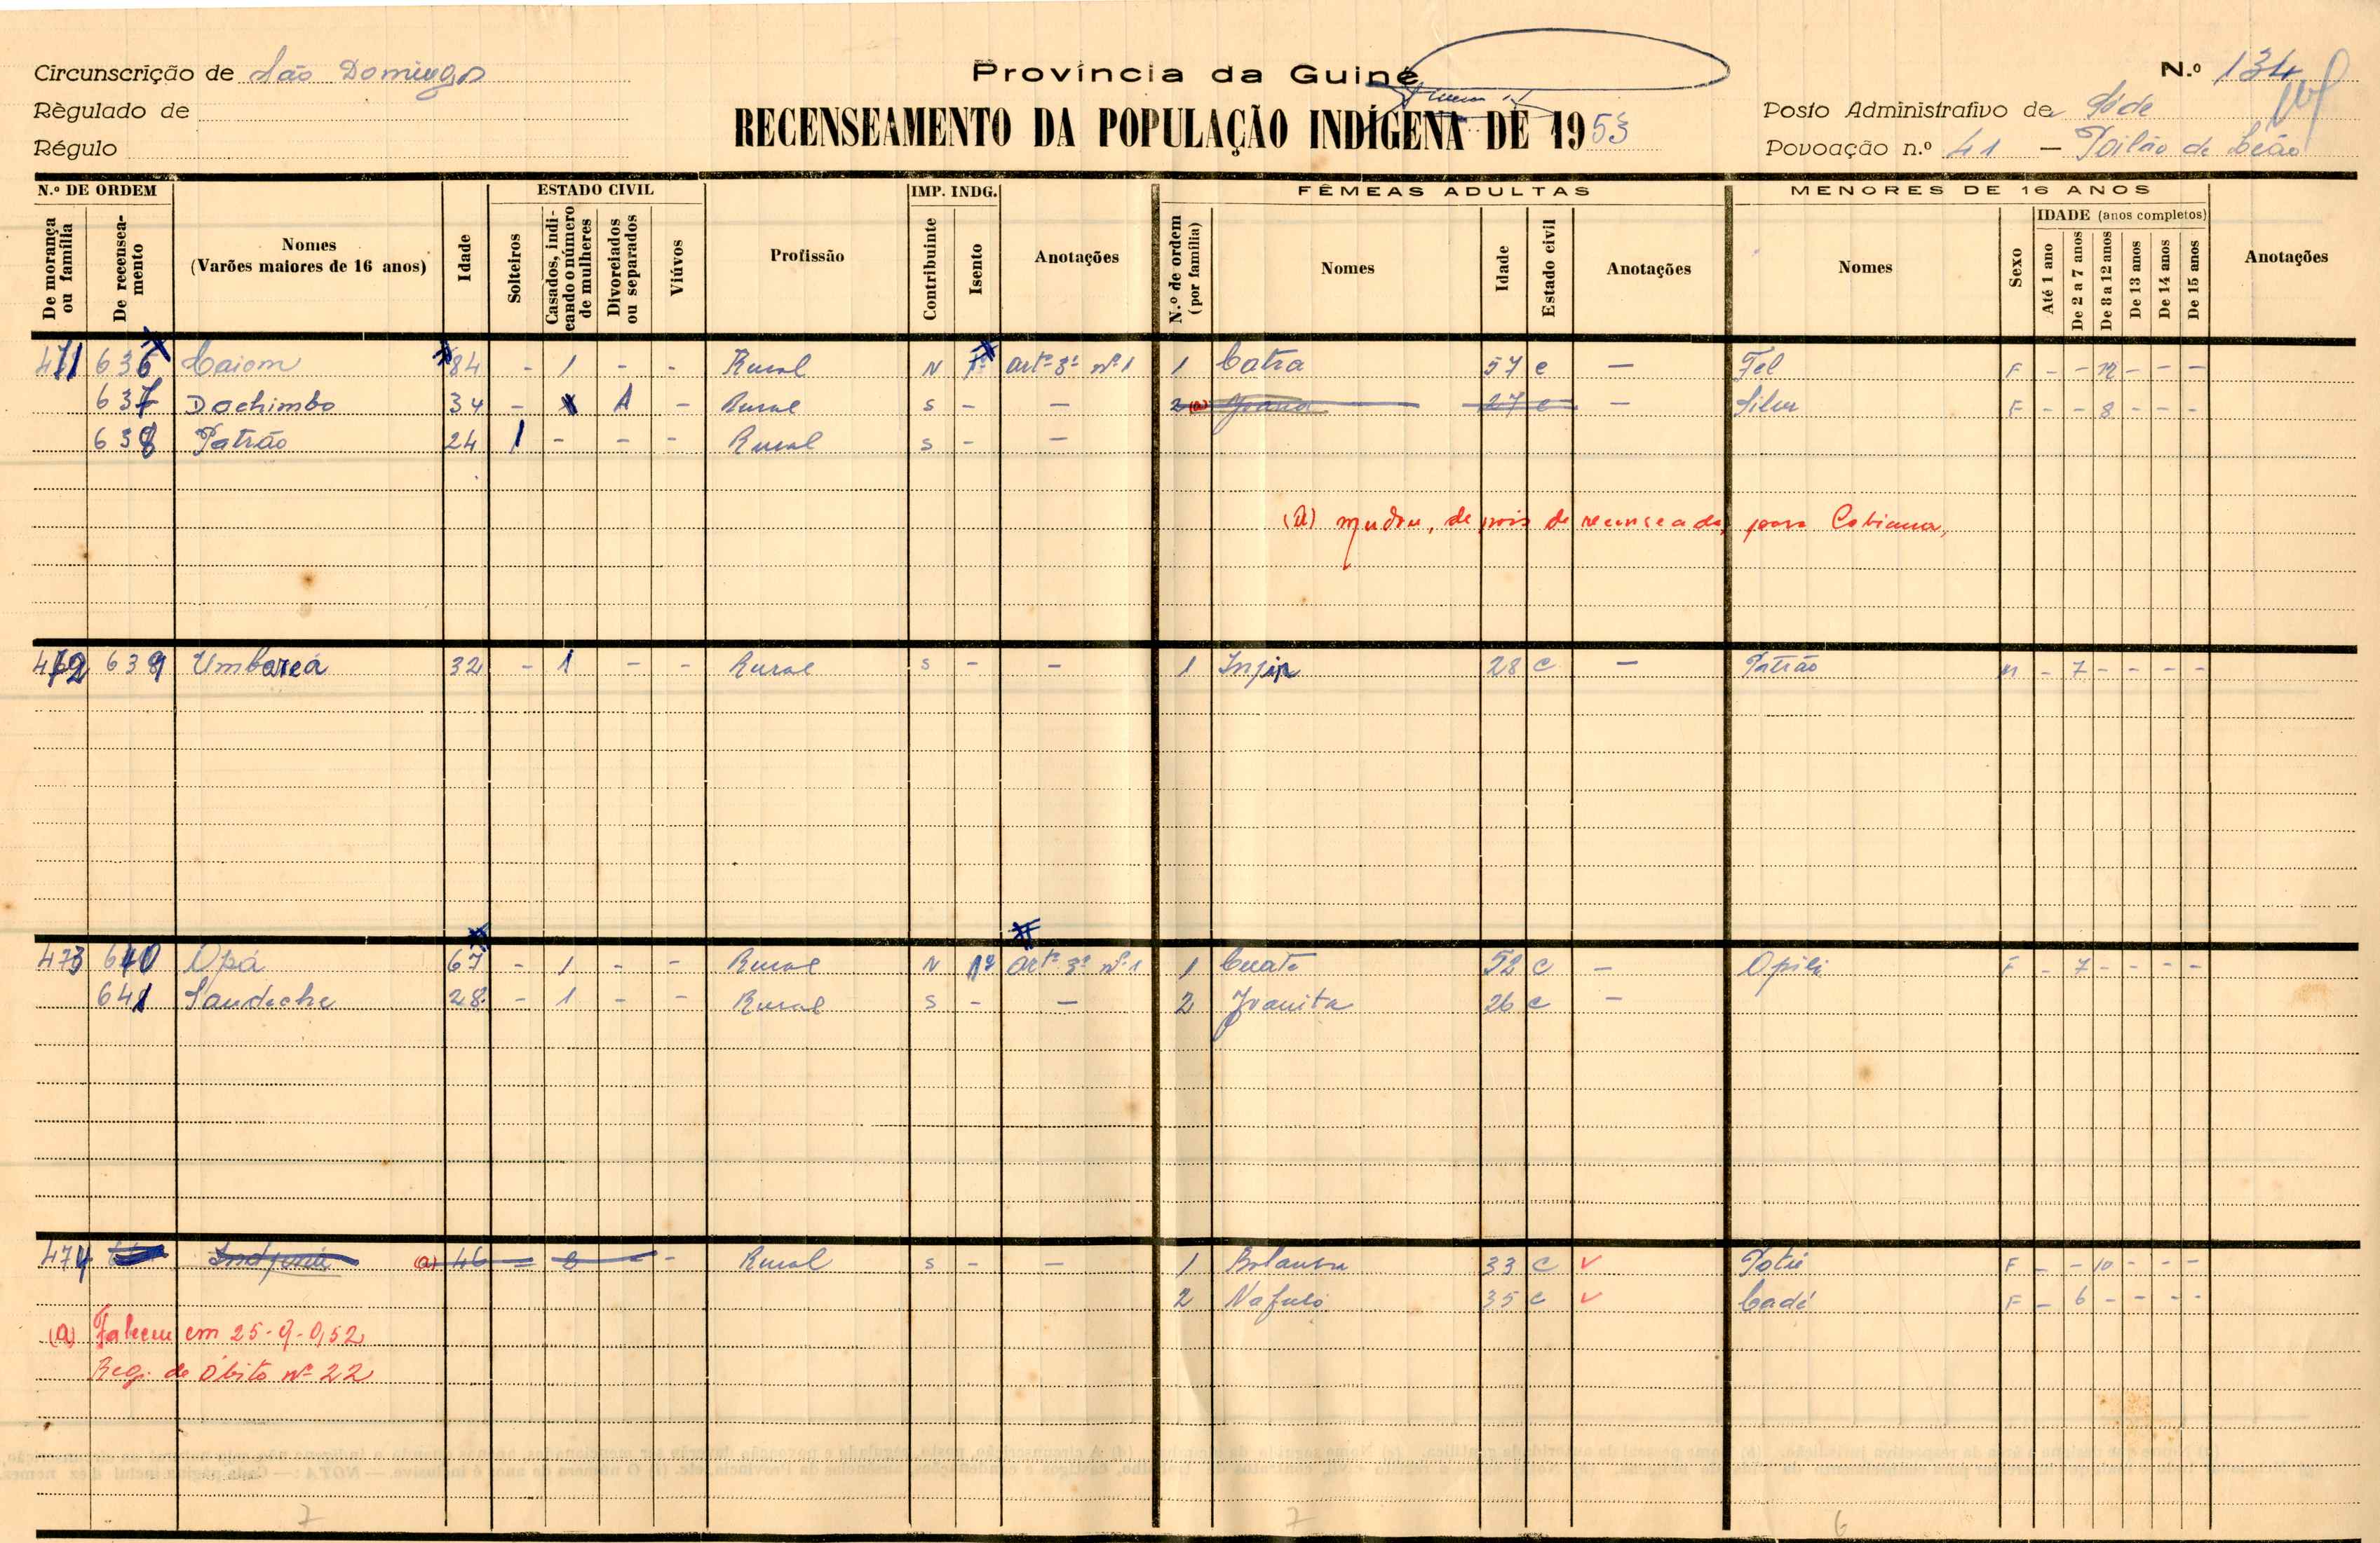 Circunscrição de São Domingos
Província da Guiné
N.º 134
Règulado de
RECENSEAMENTO DA POPULAÇÃO INDÍGENA DE 1953
Posto Administrativo de Séde
Régulo
Povoação n.º 41 – Poilão de Leão
N.º DE ORDEM
ESTADO CIVIL
IMP. INDG.
FÊMEAS ADULTAS
MENORES DE 16 ANOS
De morança ou família
De recenseamento
Nomes
(Varões maiores de 16 anos)
Idade
Solteiros
Casados, indicando o número de mulheres
Divorciados ou separados
Viúvos
Profissão
Contribuinte
Isento
Anotações
N.º de ordem (por família)
Nomes
Idade
Estado civil
Anotações
Nomes
Sexo
IDADE (anos completos)
Até 1 ano
De 2 a 7 anos
De 8 a 12 anos
De 13 anos
De 14 anos
De 15 anos
Anotações
471 636 Caiom 84 - 1 - - Rural N 1º artº 3º nº 1 1 Catra 57 c — Fel F - - 12 - - -
637 Dochimbo 34 - 1 - Rural S - — 2 (a) Joana 27 c — Silva F - - 8 - - -
638 Patrão 24 1 - - - Rural S - —
(a) mudou, depois de recenseada, para Cobiana,
472 639 Umbareá 32 - 1 - - Rural S - - 1 Injip 28 C — Patrão M - 7 - - - -
473 640 Opá 67 - 1 - - Rural N 1º artº 3º nº 1 1 Cuate 52 C - Opili F - 7 - - - -
641 Saudeche 28 - 1 - - Rural S - — 2 Joanita 26 c —
474 (a) 46 - 2 - - Rural S - — 1 33 C ✓ Potié F - - 10 - - -
2 Nafuló 35 c ✓ Cadé F - 6 - - - -
(a) Faleceu em 25-9-952
Reg. de Óbito nº 22
7 7 6